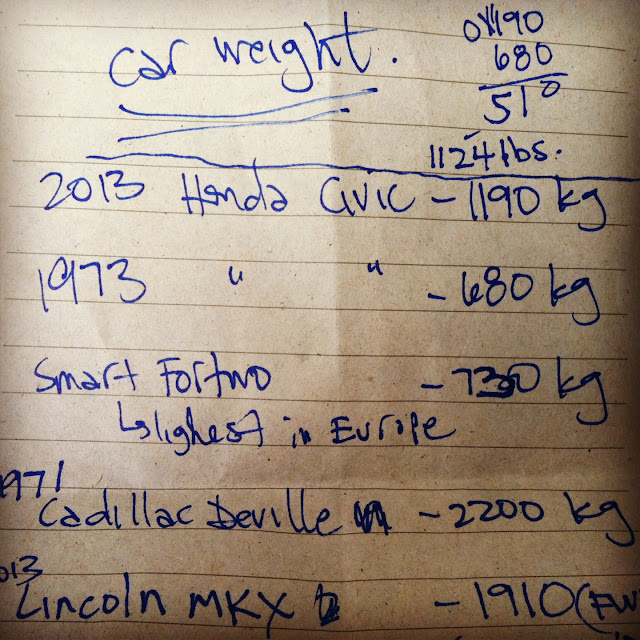 car weight.
1190
680
510
1124 lbs.
2013 Honda Civic - 1190 kg
1973 " " - 680 kg
Smart Fortwo - 730 kg
↳ lighest in Europe
1971
Cadillac Deville - 2200 kg
2013
Lincoln MKX - 1910 (FW